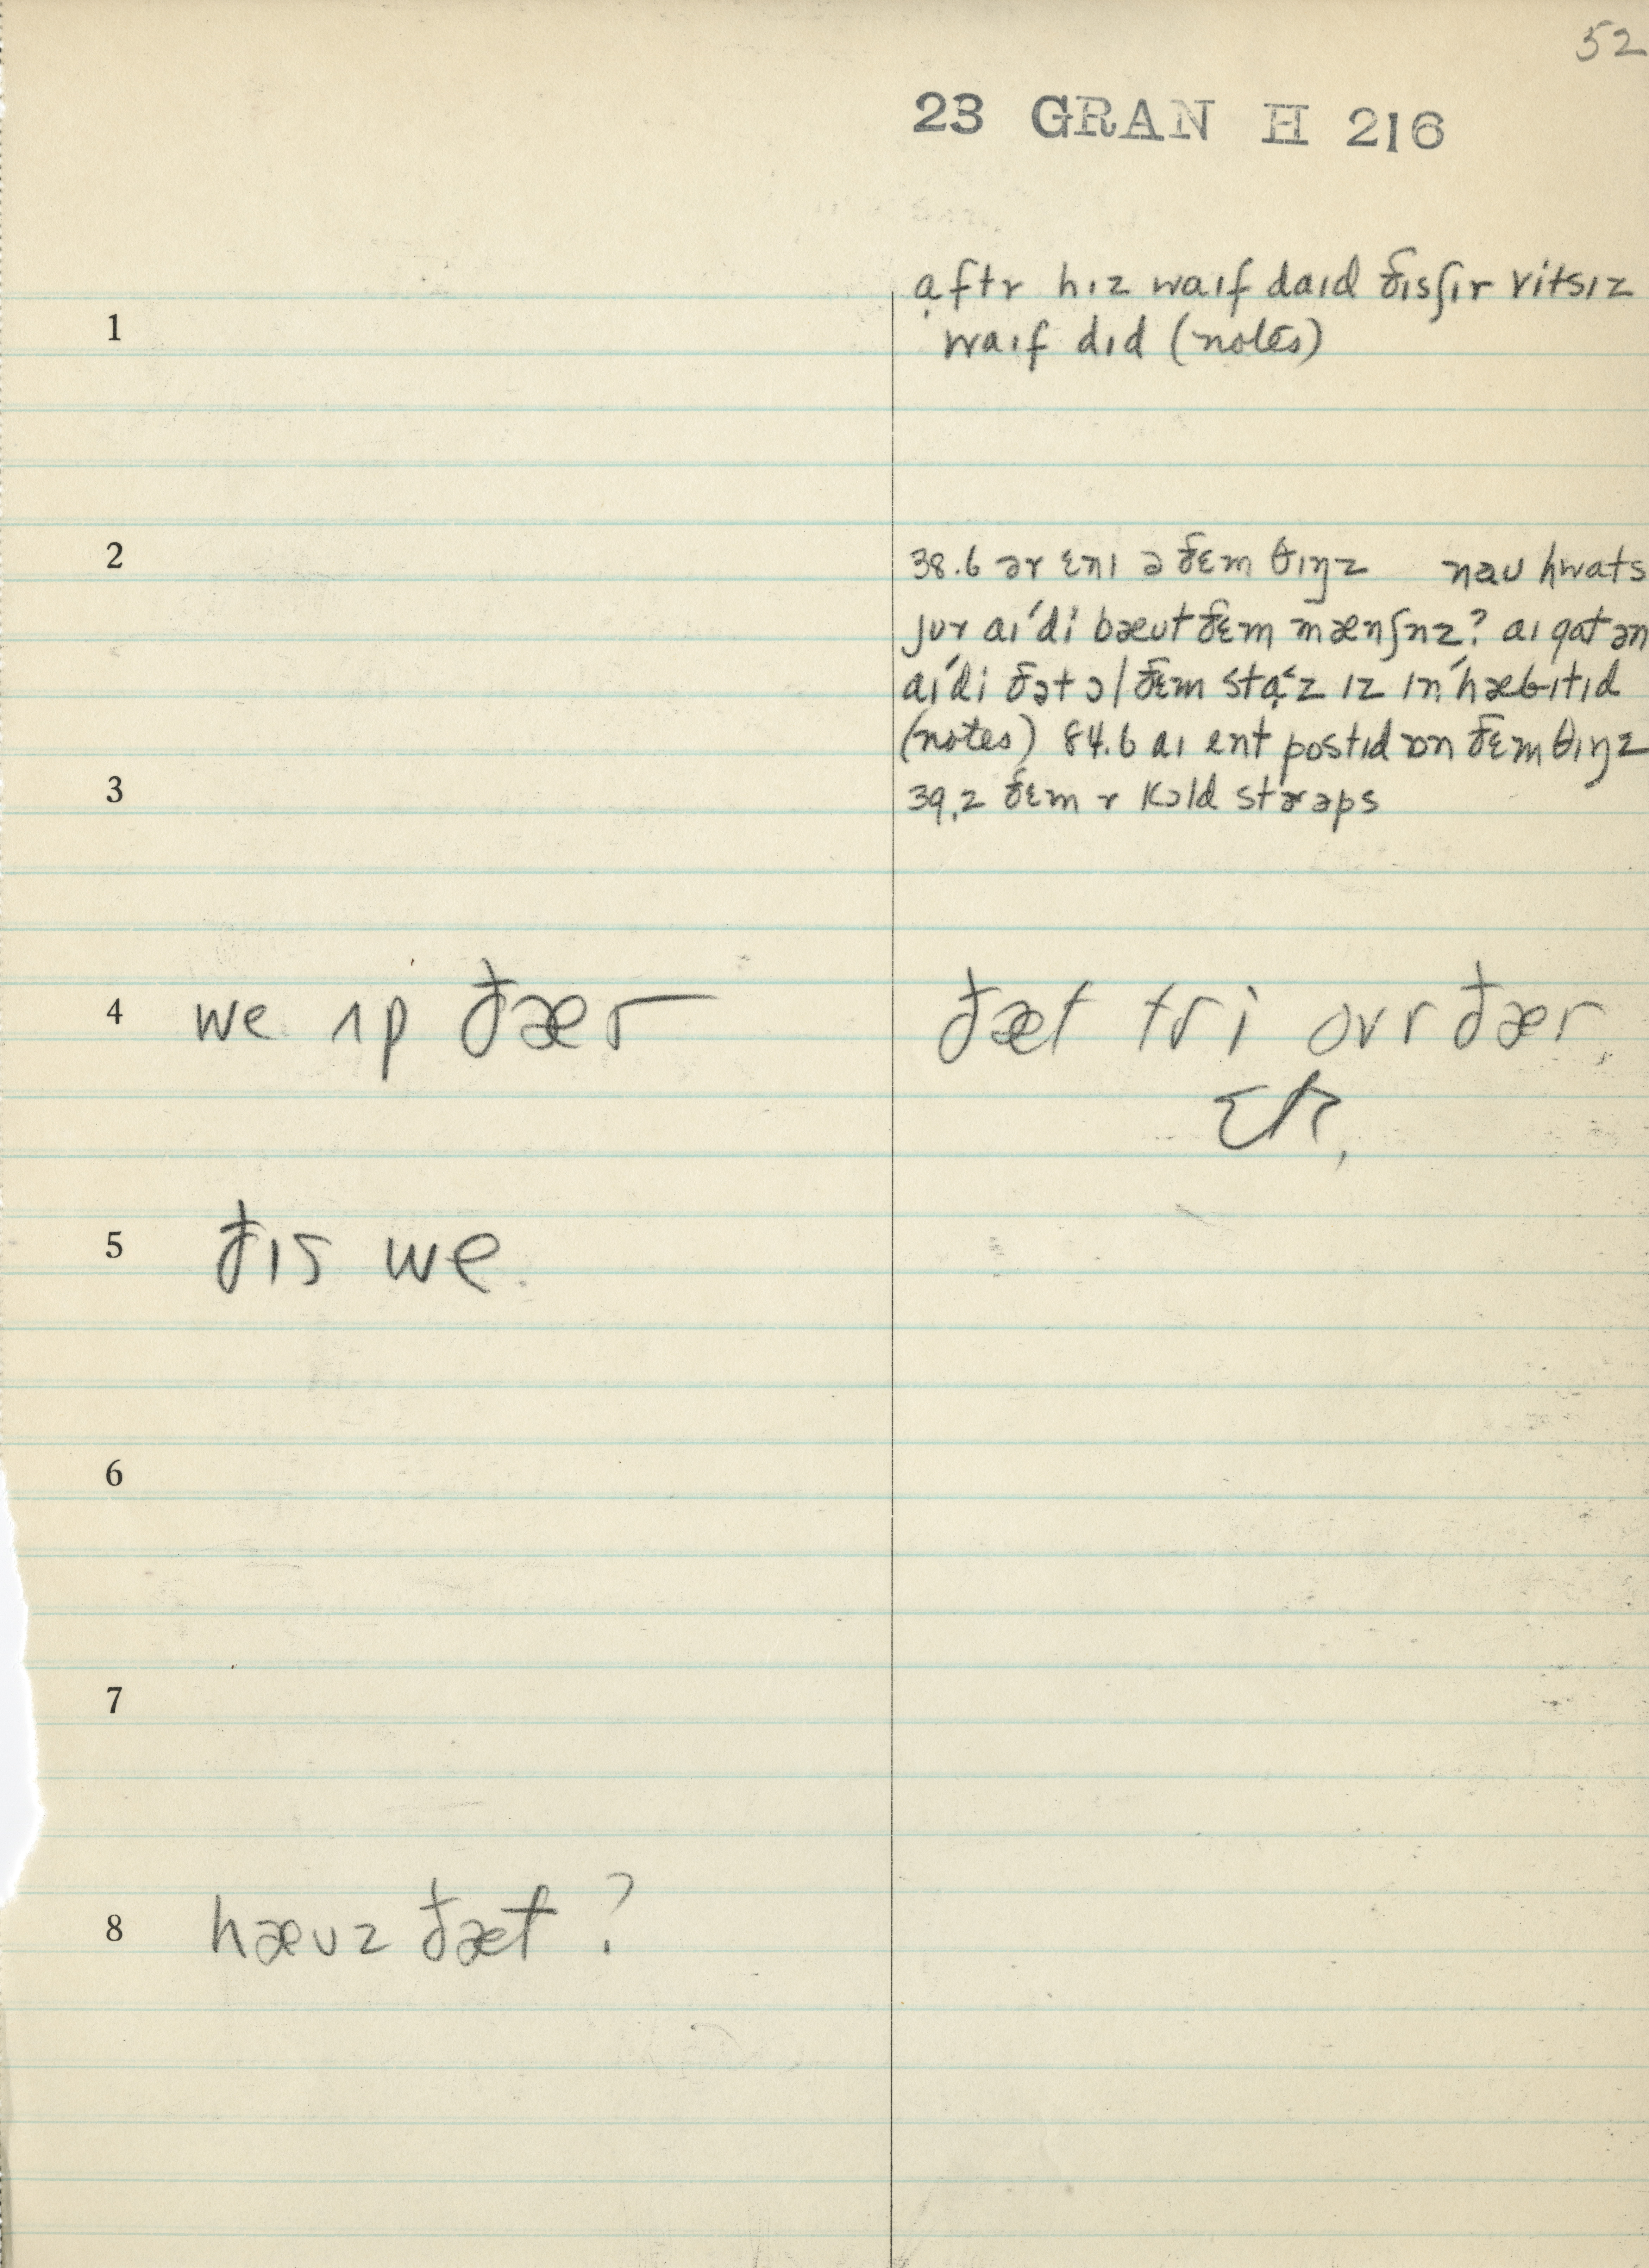 52
23 GRAN H 216
1
ạftr hɪz waɪf daɪd ðɪsʃɪr ritsɪz
waɪf dɪd (notes)
2
38.6 ər ɛnɪ ə ðɛm θɪŋz nau hwats
jʊr aɪ'di bæʊt ðɛm mænʃnz? aɪ gat ən
aɪ'di ðət ɔl ðɛm stạ'z ɪz ɪn'hæbɪtɪd
(notes) 84.6 aɪ ent postɪd ɒn ðɛm θɪŋz
3
39.2 ðɛm r kɔld strəps
4 we ʌp ðær ðæt tri ovr ðær.
5 ðɪs we.
6
7
8 hæʊz ðæt ?